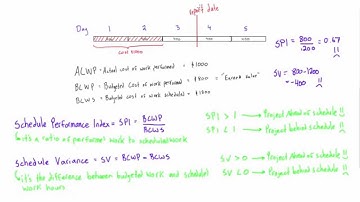 report date
Day 1 2 3 4 5
400 400 400
SPI = 800/1200 = 0.67 !!
ACWP = Actual cost of work performed = $1000
BCWP = Budgeted Cost of work performed = $800 = "Earned value"
BCWS = Budgeted cost of work scheduled = $1200
SV = 800-1200
= -400 !!
Schedule Performance Index = SPI = BCWP/BCWS
it's a ratio of performed work to scheduled work
SPI > 1 → Project Ahead of Schedule !!
SPI < 1 → Project behind schedule !!
Schedule Variance = SV = BCWP - BCWS
it's the difference between budgeted work and scheduled
work hours
SV > 0 → Project Ahead of schedule !!
SV < 0 → Project behind schedule !!